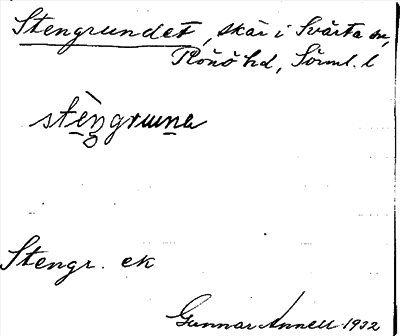 Stengrundet, skär i Svärta sn,
Rönö hd, Sörml. l
Stengr. ek
Gunnar Annell 1932